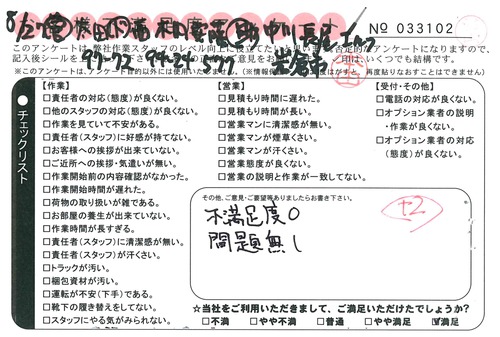 不満足度
Nº 033102
このアンケートは、弊社作業スタッフのレベル向上に役立てたいと
否定的なアンケートになりますので、
記入後シールを
いつでも結構です。
※このアンケートは、目的以外には使用いたしません。
再度貼りなおすことはできません)
チェックリスト
【作業】
□責任者の対応(態度)が良くない。
□他のスタッフの対応(態度)が良くない。
□作業を見ていて不安がある。
□責任者(スタッフ)に好感が持てない。
□お客様への挨拶が出来ていない。
□ご近所への挨拶・気遣いが無い。
□作業開始前の内容確認がなかった。
□作業開始時間が遅れた。
□荷物の取り扱いが雑である。
□お部屋の養生が出来ていない。
□作業時間が長すぎる。
□責任者(スタッフ)に清潔感が無い。
□責任者(スタッフ)が汗くさい。
□トラックが汚い。
□梱包資材が汚い。
□運転が不安(下手)である。
□靴下の履き替えをしてない。
□スタッフにやる気がみられない。
【営業】
□見積もり時間に遅れた。
□見積もり時間が長い。
□営業マンに清潔感が無い。
□営業マンが煙草くさい。
□営業マンが汗くさい。
□営業態度が良くない。
□営業の説明と作業が一致してない。
【受付・その他】
□電話の対応が良くない。
□オプション業者の説明
・作業が良くない。
□オプション業者の対応
(態度)が良くない。
その他、ご意見・ご要望等ありましたらお書き下さい。
不満足度0
問題無し
+2
☆当社をご利用いただきまして、ご満足いただけたでしょうか?
□不満 □やや不満 □普通 □やや満足 ☑満足